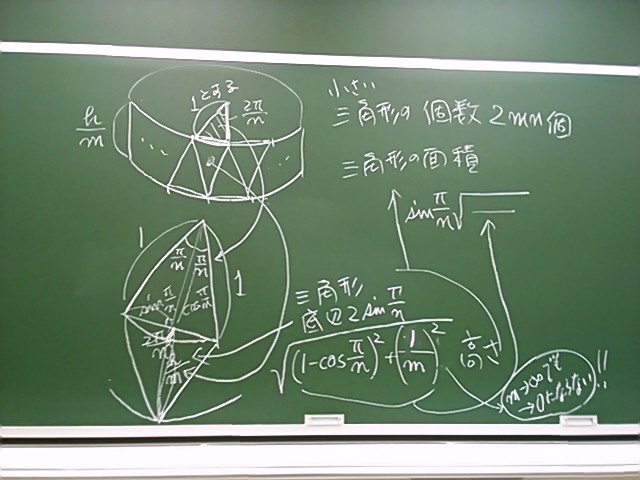 1とする
2π/n
h/m
小さい
三角形の個数2mn個
三角形の面積
sin π/n √
1
π/n
π/n
1
sin π/n
cos π/n
三角形
底辺2sin π/n
√(1-cos π/n)² + (1/m)²
高さ
m→∞でも
→0にならない!!